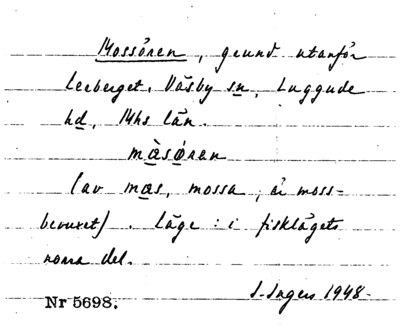 Mossören, grund utanför
Lerberget, Väsby sn, Luggude
hd, Mhs län.
mæ̀sǿren
(av mæs, mossa; är moss-
bevuxet). Läge: i fisklägets
norra del.
I. Ingers 1948.
Nr 5698.